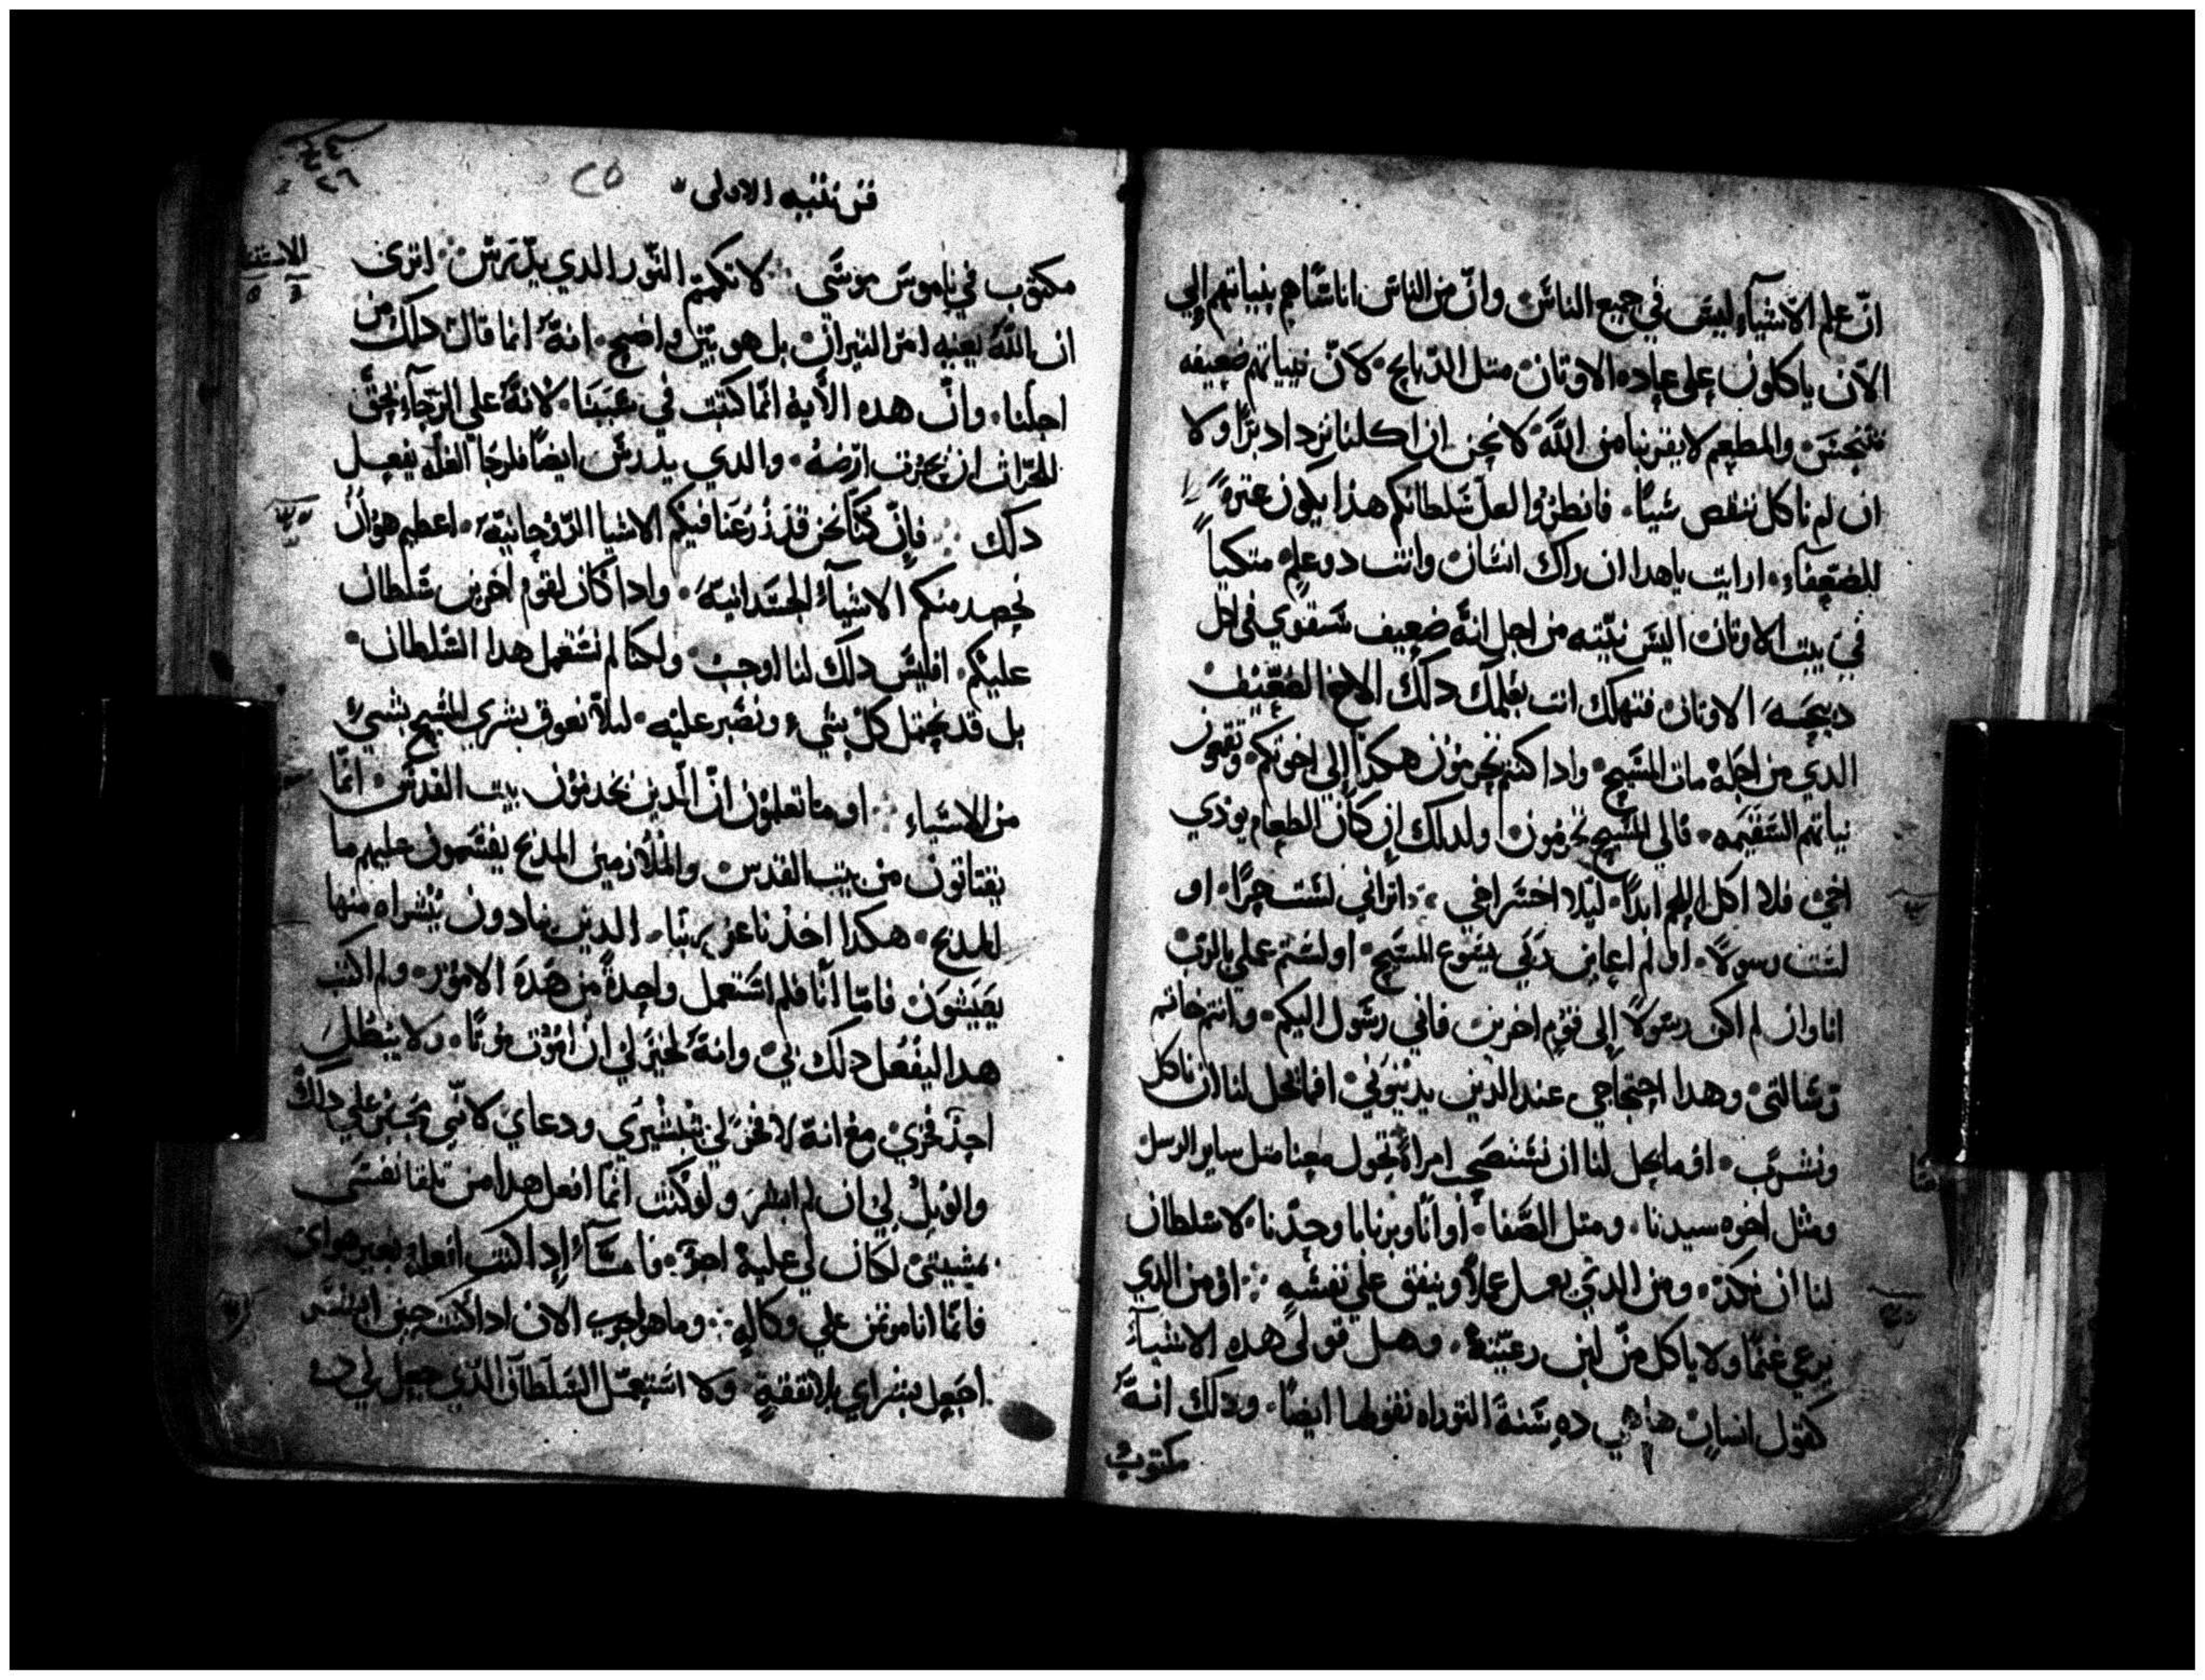 انّ علم الاشيآء ليسَ في جميع الناسَ وانّ من الناسَ اناسًا هم بنياتهم الي
الآن ياكلون علي عباده الاوتان متل الدبايح لانّ نيياتهم ضعيفه
فتنجسَ والمطعم لا يقربنا من اللّهَ لا نحن ان اكلنا نزداد برًا ولا
ان لم ناكل ننقص شيًا فانظروا لعل سَلطانكم هذا يكون عترةً
للضعفآء ارايت ياهدا ان راك انسَان وانت دو علمٍ متكيًا
في بيت الاوتان اليسَ نيّته من اجل انهَّ ضعيف سَتقوي في اكل
دبيحَة الاوتان فتهلك انت بعلمك دلك الاخ الضعّيف
الدي من اجله مات المسَيح وادا كنتم تجرمون هكذا الي اخوتكم وتقهرون
نياتهم السَقيمه فالي المسَيح تجرمون ولدلك ان كان الطعام يودي
اخي فلا اكل اللحم ابدًا ليلا اخسَر اخي اتراني لسَت حرًا او
لسَت رسولاً او لم اعاين ربّي يسَوع المسَيح اولسَتم عملي بالربّ
انا وان لم اكن رسَولاً الي قوم اخرين فاني رسَول اليكم وانتم خاتم
رسَالتي وهدا احتجاجي عند الدين يدينوني افما يحل لنا ان ناكل
ونشربَ او ما يحل لنا ان نسَتصحب امراةً تجول معنا متل ساير الرسل
ومثل اخوه سيدنا ومتل الصَّفا او انا وبرنابا وحدّنا لا سلطان
لنا ان نكدّ ومن الدي يعمل عملاً وينفق علي نفسَه او من الدي
يرعي غنمًا ولا ياكل من لبن رعيّتهُ وهل قولي هده الاشيآء
كقول انسان ها هي ده سَنةَ التوراه تقولها ايضًا ودلك انهَّ
مكتوب
قرنتيه الاولي
٢٥
مكتوب في ناموسَ موسَي لا تكمّ التّور الدي يدّرسَ اتري
ان اللّهَ يعنيه امر التيران بل هو بيّن واضح انهَّ انما قال دلك من
اجلنا وانّ هده الاية انما كتبت في سَببنَا لانهَّ علي الرجآء يحق
للحرّاث ان يحرث ارضهُ والدي يدرسَ ايضًا فلرجا الغلّه يفعل
دلك فان كنّا نحن قد زرعنا فيكم الاشيا الروحانية اعظيم هو ان
نحصد منكم الاشيآء الجسَدانية وادا كان لقوم اخرين سَلطان
عليكم افليسَ دلك لنا اوجب ولكنا لم نسَتعمل هدا السَلطان
بل قد نحتمل كل شيء ونصبر عليه ليلا نعوق بشري المسَيح بشيء
من الاشياء او ما تعلمون انّ الّدين يخدمون بيت القدسَ انمّا
يقتاتون من بيت القدس والملازمين المدبح يقسَمون عليهم ما
للمدبح هكدا اخذنا عن ربنا الدين ينادون ببشراه منها
يعيشون فامّا انا فلم اسَتعمل واحدةً من هدَه الامور ولم اكتب
هدا ليفعل دلك بي وانهَّ لخير لي ان اموت موتًا ولا يبطل
احد فخري مع انهَّ لا فخرَ لي بتبشيري ودعاي لانّي مجبر علي دلك
والويل لي ان لم ابشر ولو كنت انمّا افعل هدا من تلقا نفسَي
بمشيتي لكان لي عليه اجرٌ فامسَا ادا كنت افعله بغير هواي
فانما انا موتمن علي وكاله وما هو اجري الان ادا كنت حين ابشّر
اجعل بشراي بلا نفقةٍ ولا اسَتعمل السَلطان الدي جعل لي ده